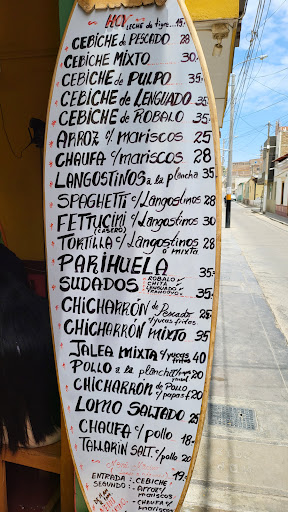 HOY LECHE de tigre 15.-
CEBICHE de PESCADO 28
CEBICHE MIXTO 30.-
CEBICHE de PULPO 35.-
CEBICHE de LENGUADO 35.-
CEBICHE de ROBALO 35.-
ARROZ c/ mariscos 25
CHAUFA c/mariscos 28
LANGOSTINOS a la plancha 35
SPAGHETTI c/Langostinos 28
FETTUCINI c/Langostinos 30
(CASERO)
TORTILLA c/ Langostinos 28
o mixta
PARIHUELA 35.
SUDADOS ROBALO CHITA LENGUADO TRAMBOYO 35.
CHICHARRÓN de Pescado c/yucas fritas 28
CHICHARRÓN MIXTO 35
JALEA MIXTA c/yucas fritas 40
POLLO a la plancha 20
CHICHARRON de POLLO c/papas f. 20
LOMO SALTADO 25
CHAUFA c/pollo 18.-
TALLARÍN SALT. c/pollo 20
19.-
ENTRADA: CEBICHE
SEGUNDO: ARROZ c/ mariscos
CHAUFA c/ mariscos